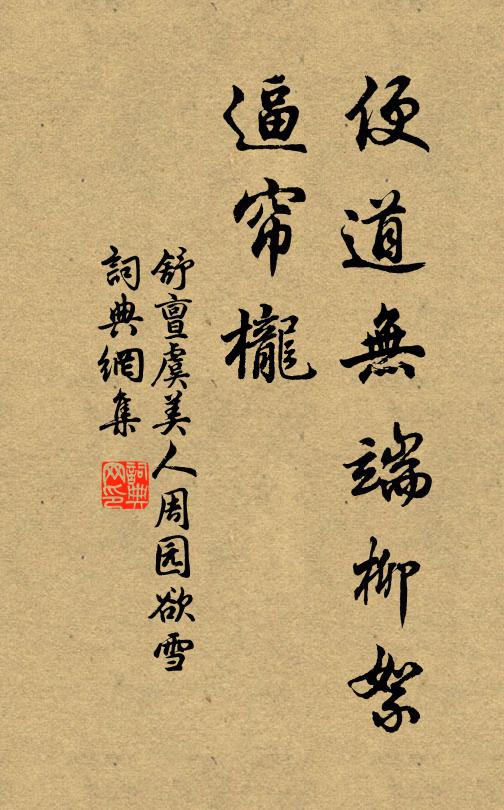 便道無端柳絮
逼帘櫳
舒亶虞美人周园欲雪
詞典網集
詞典網印